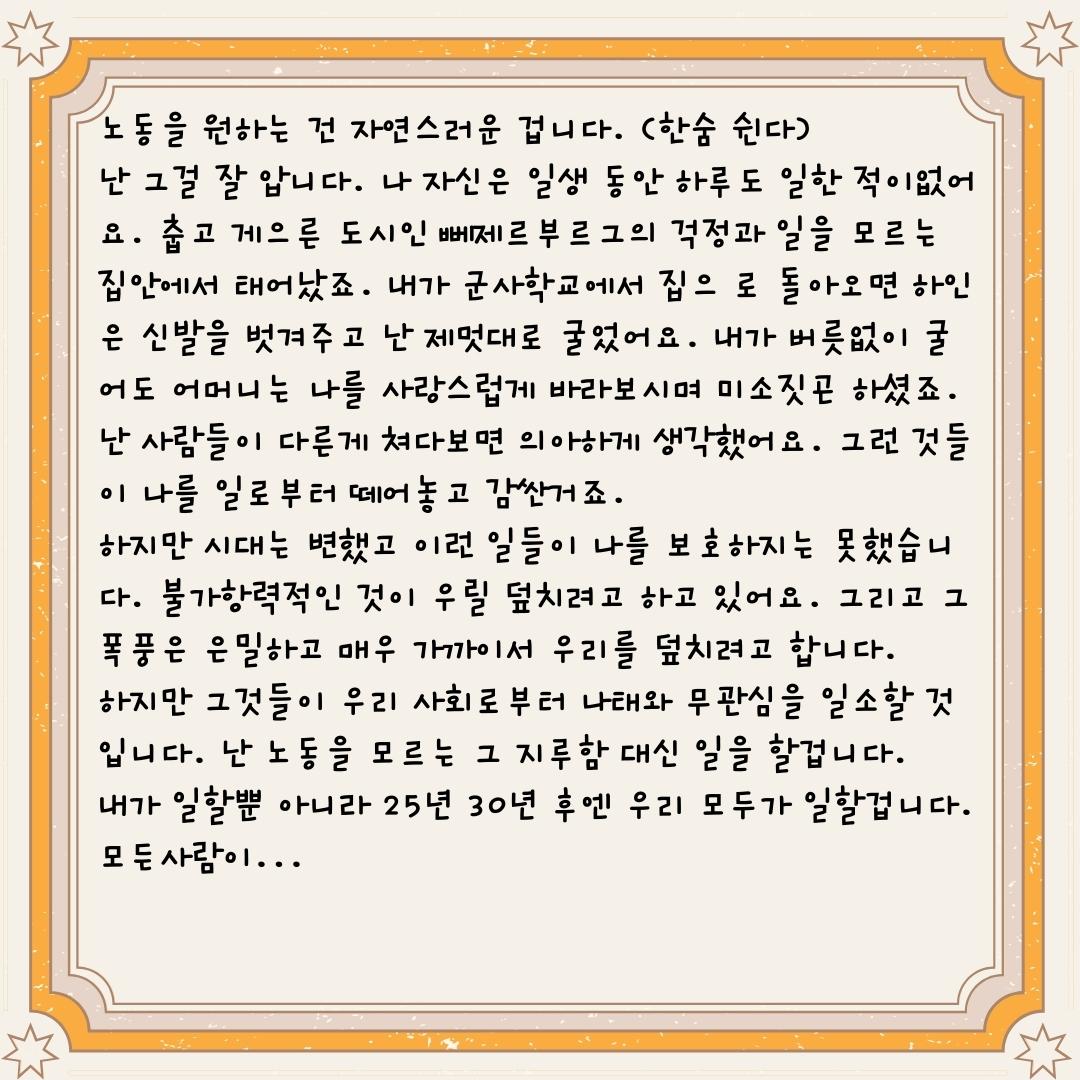 노동을 원하는 건 자연스러운 겁니다. (한숨 쉰다)
난 그걸 잘 압니다. 나 자신은 일생 동안 하루도 일한 적이없어
요. 춥고 게으른 도시인 뻬쩨르부르그의 걱정과 일을 모르는
집안에서 태어났죠. 내가 군사학교에서 집으 로 돌아오면 하인
은 신발을 벗겨주고 난 제멋대로 굴었어요. 내가 버릇없이 굴
어도 어머니는 나를 사랑스럽게 바라보시며 미소짓곤 하셨죠.
난 사람들이 다른게 쳐다보면 의아하게 생각했어요. 그런 것들
이 나를 일로부터 떼어놓고 감싼거죠.
하지만 시대는 변했고 이런 일들이 나를 보호하지는 못했습니
다. 불가항력적인 것이 우릴 덮치려고 하고 있어요. 그리고 그
폭풍은 은밀하고 매우 가까이서 우리를 덮치려고 합니다.
하지만 그것들이 우리 사회로부터 나태와 무관심을 일소할 것
입니다. 난 노동을 모르는 그 지루함 대신 일을 할겁니다.
내가 일할뿐 아니라 25년 30년 후엔 우리 모두가 일할겁니다.
모든사람이...